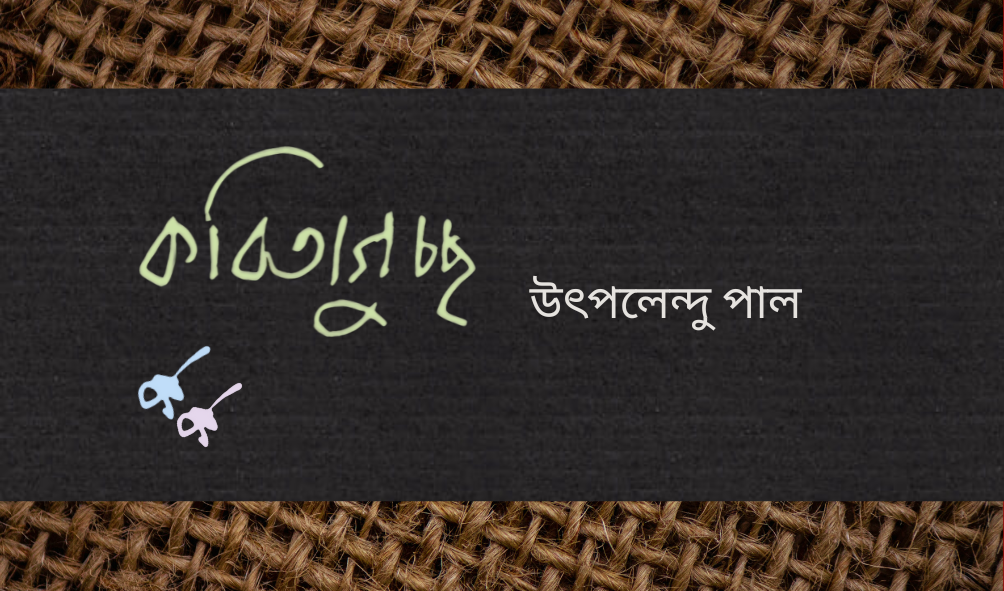 কবিতাগুচ্ছ
উৎপলেন্দু পাল